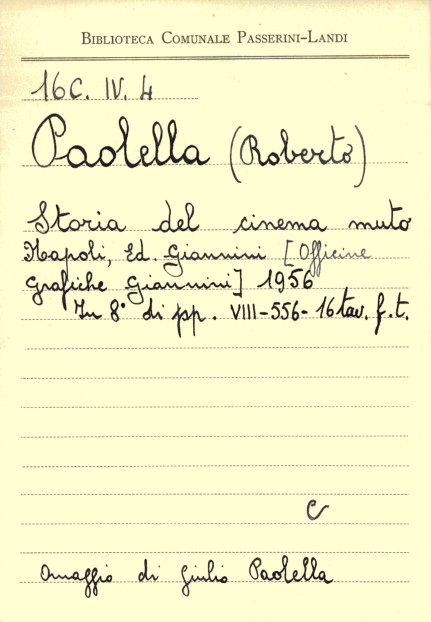 BIBLIOTECA COMUNALE PASSERINI-LANDI
16C. IV. 4
Paolella (Roberto)
Storia del cinema muto
Napoli, Ed. Giannini [Officine
Grafiche Giannini] 1956
In 8° di pp. VIII-556-16 tav. f.t.
C
Omaggio di Giulio Paolella